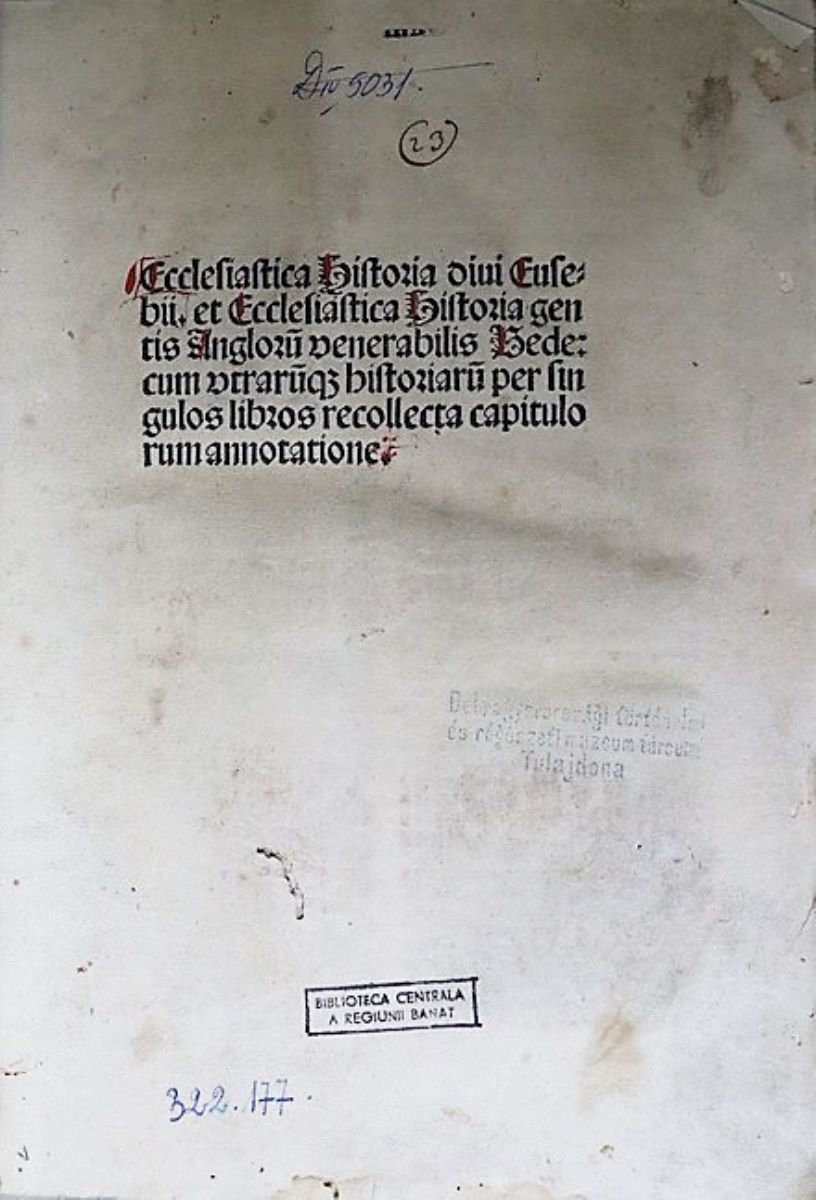 Div 5031.
23
Ecclesiastica Historia diui Euse-
bii. et Ecclesiastica Historia gen
tis Anglorū venerabilis Bede:
cum vtrarūqꝫ historiarū per sin
gulos libros recollecta capitulo
rum annotatione.
Delmagyarországi történelmi
és régészeti muzeum társulat
Tulajdona
BIBLIOTECA CENTRALA
A REGIUNII BANAT
322.177.